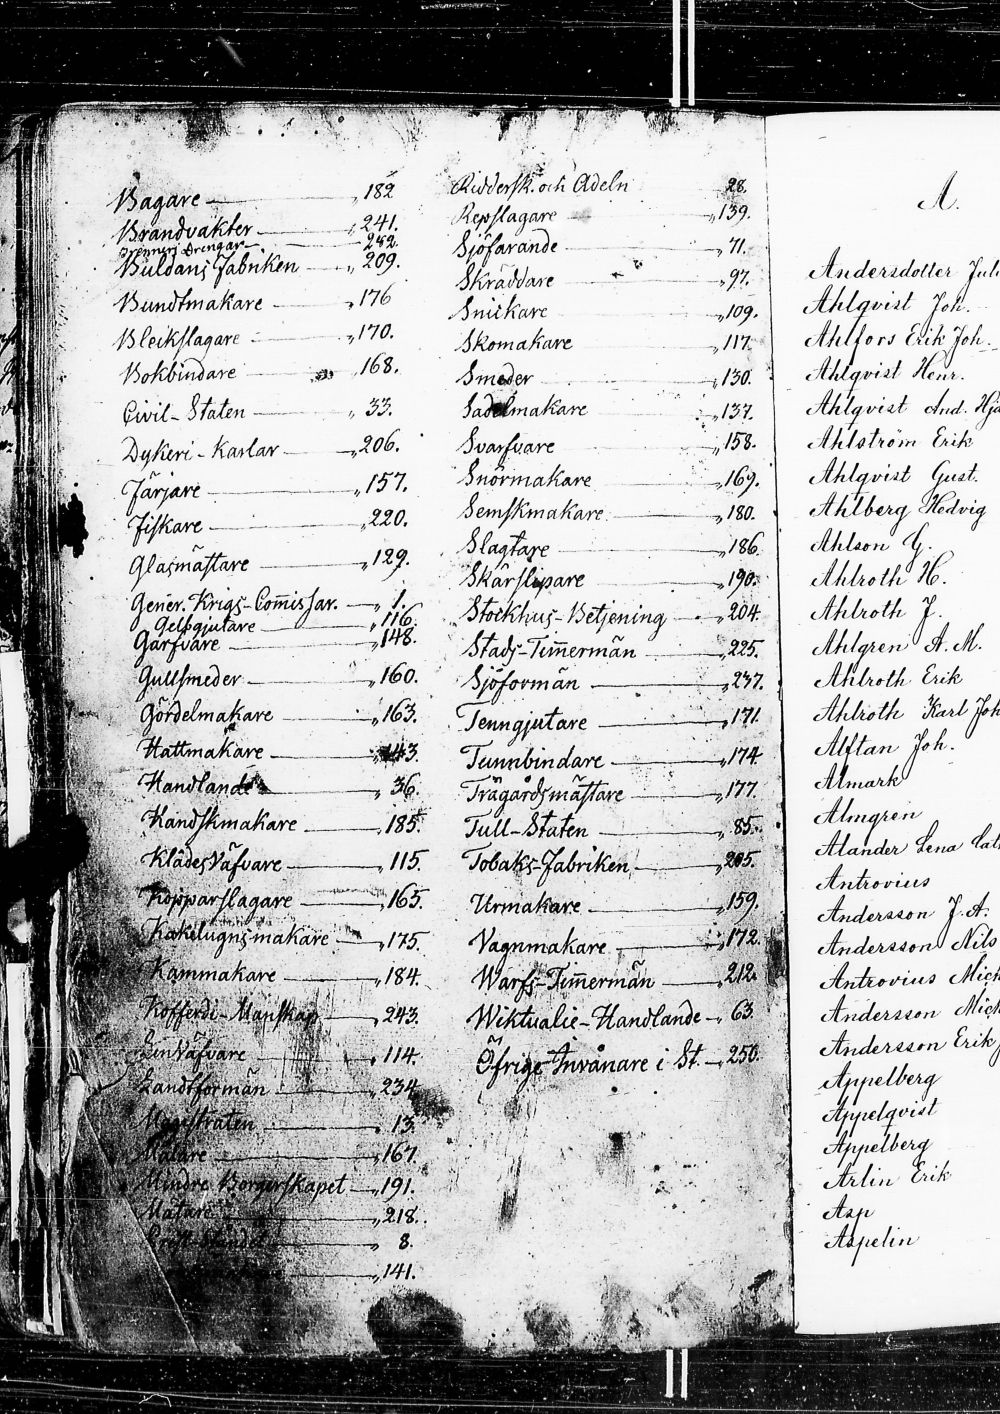 Bagare „ 182
Brandvakter „ 241.
Brenneri Drengar 282.
Buldans Fabriken „ 209.
Buntmakare „ 176
Bleckslagare „ 170.
Bokbindare „ 168.
Civil-Staten „ 33.
Dykeri-Karlar „ 206.
Färjare „ 157.
Fiskare „ 220.
Glasmästare „ 129.
Gener. Krigs-Com̄issar. „ 1.
Gelbgjutare „ 116.
Garfvare „ 148.
Gullsmeder „ 160.
Gördelmakare „ 163.
Hattmakare „ 143.
Handlande „ 36.
Handskmakare „ 185.
Klädesväfvare „ 115.
Kopparslagare „ 165.
Kakelugnsmakare „ 175.
Kammakare „ 184.
Kofferdi-Manskap „ 243.
Linväfvare „ 114.
Landtformän „ 234
Magistraten „ 13.
Målare „ 167.
Mindre Borgerskapet „ 191.
Mätare „ 218.
„ 8.
„ 141.
Riddersk. och Adeln 28.
Repslagare „ 139.
Sjöfarande „ 71.
Skräddare „ 97.
Snickare „ 109.
Skomakare „ 117.
Smeder „ 130.
Sadelmakare „ 137.
Svarfvare „ 158.
Snörmakare „ 169.
Semskmakare „ 180.
Slagtare „ 186.
Skärslipare „ 190.
Stockhus-Betjening „ 204.
Stads-Tim̄ermän „ 225.
Sjöformän „ 237.
Tenngjutare „ 171.
Tunnbindare „ 174
Trägårdsmästare „ 177.
Tull-Staten „ 85.
Tobaks-Fabriken „ 205.
Urmakare „ 159.
Vagnmakare „ 172.
Warfs-Tim̄ermän „ 212.
Wiktualie-Handlande „ 63.
Öfrige Invånare i St. „ 250.
A.
Andersdotter
Ahlqvist Joh.
Ahlfors Erik Joh.
Ahlqvist Henr.
Ahlqvist And.
Ahlström Erik
Ahlqvist Gust.
Ahlberg Hedvig
Ahlson G.
Ahlroth H.
Ahlroth J.
Ahlgren A. M.
Ahlroth Erik
Ahlroth Karl Joh
Alftan Joh.
Almark
Almgren
Alander Lena
Antrovius
Andersson J. A.
Andersson Nils
Antrovius Mich
Andersson Mich
Andersson Erik
Appelberg
Appelqvist
Appelberg
Arlin Erik
Asp
Aspelin